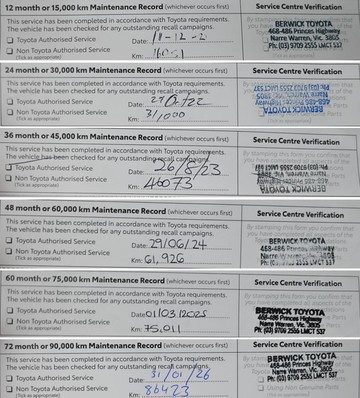 12 month or 15,000 km Maintenance Record (whichever occurs first) Service Centre Verification
This service has been completed in accordance with Toyota requirements.
The vehicle has been checked for any outstanding recall campaigns.
☐ Toyota Authorised Service Date:
☐ Non Toyota Authorised Service
(Tick as appropriate) Km:
BERWICK TOYOTA
468-486 Princes Highway
Narre Warren, Vic. 3805
Ph: (03) 9709 2555 LMCT 537
24 month or 30,000 km Maintenance Record (whichever occurs first) Service Centre Verification
This service has been completed in accordance with Toyota requirements.
The vehicle has been checked for any outstanding recall campaigns.
☐ Toyota Authorised Service Date:
☐ Non Toyota Authorised Service
(Tick as appropriate) Km: 31,000
Ph: (03) 9709 2555 LMCT 537
Narre Warren, Vic. 3805
468-486 Princes Highway
BERWICK TOYOTA
36 month or 45,000 km Maintenance Record (whichever occurs first) Service Centre Verification
This service has been completed in accordance with Toyota requirements.
The vehicle has been checked for any outstanding recall campaigns.
☐ Toyota Authorised Service Date: 26/8/23
☐ Non Toyota Authorised Service
(Tick as appropriate) Km: 46073
Ph: (03) 9709 2555 LMCT 537
Narre Warren, Vic. 3805
468-486 Princes Highway
BERWICK TOYOTA
48 month or 60,000 km Maintenance Record (whichever occurs first) Service Centre Verification
This service has been completed in accordance with Toyota requirements.
The vehicle has been checked for any outstanding recall campaigns.
☐ Toyota Authorised Service Date: 29/06/24
☐ Non Toyota Authorised Service
(Tick as appropriate) Km: 61,926
BERWICK TOYOTA
468-486 Princes Highway
60 month or 75,000 km Maintenance Record (whichever occurs first) Service Centre Verification
This service has been completed in accordance with Toyota requirements.
The vehicle has been checked for any outstanding recall campaigns.
☐ Toyota Authorised Service Date: 01/03/2025
☐ Non Toyota Authorised Service
(Tick as appropriate) Km: 75,011
BERWICK TOYOTA
468-486 Princes Highway
Narre Warren, Vic. 3805
Ph: (03) 9709 2555 LMCT 537
72 month or 90,000 km Maintenance Record (whichever occurs first) Service Centre Verification
This service has been completed in accordance with Toyota requirements.
The vehicle has been checked for any outstanding recall campaigns.
☐ Toyota Authorised Service Date: 31/01/26
☐ Non Toyota Authorised Service
(Tick as appropriate) Km: 86423
BERWICK TOYOTA
468-486 Princes Highway
Narre Warren, Vic. 3805
Ph: (03) 9709 2555 LMCT 537